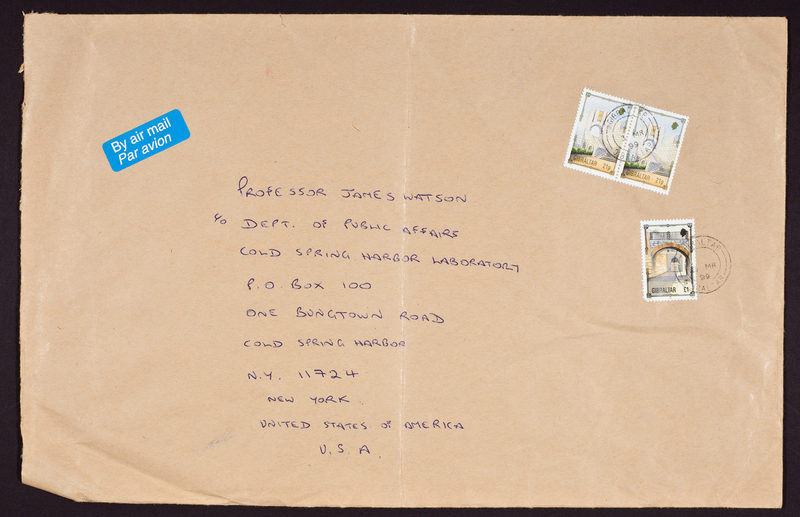 By air mail
Par avion
PROFESSOR JAMES WATSON
c/o DEPT. OF PUBLIC AFFAIRS
COLD SPRING HARBOR LABORATORY
P.O. BOX 100
ONE BUNGTOWN ROAD
COLD SPRING HARBOR
N.Y. 11724
NEW YORK.
UNITED STATES OF AMERICA
U.S.A.
GIBRALTAR 21p
GIBRALTAR 21p
MR
99
GIBRALTAR £1
MR
99